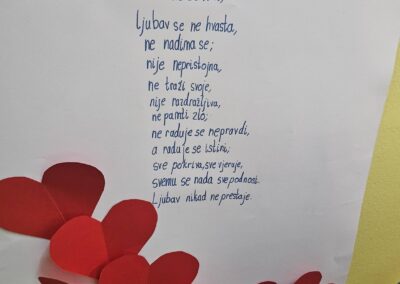 Ljubav se ne hvasta,
ne nadima se;
nije nepristojna,
ne traži svoje,
nije razdražljiva,
ne pamti zlo;
ne raduje se nepravdi,
a raduje se istini;
sve pokriva, sve vjeruje,
svemu se nada sve podnosi.
Ljubav nikad ne prestaje.